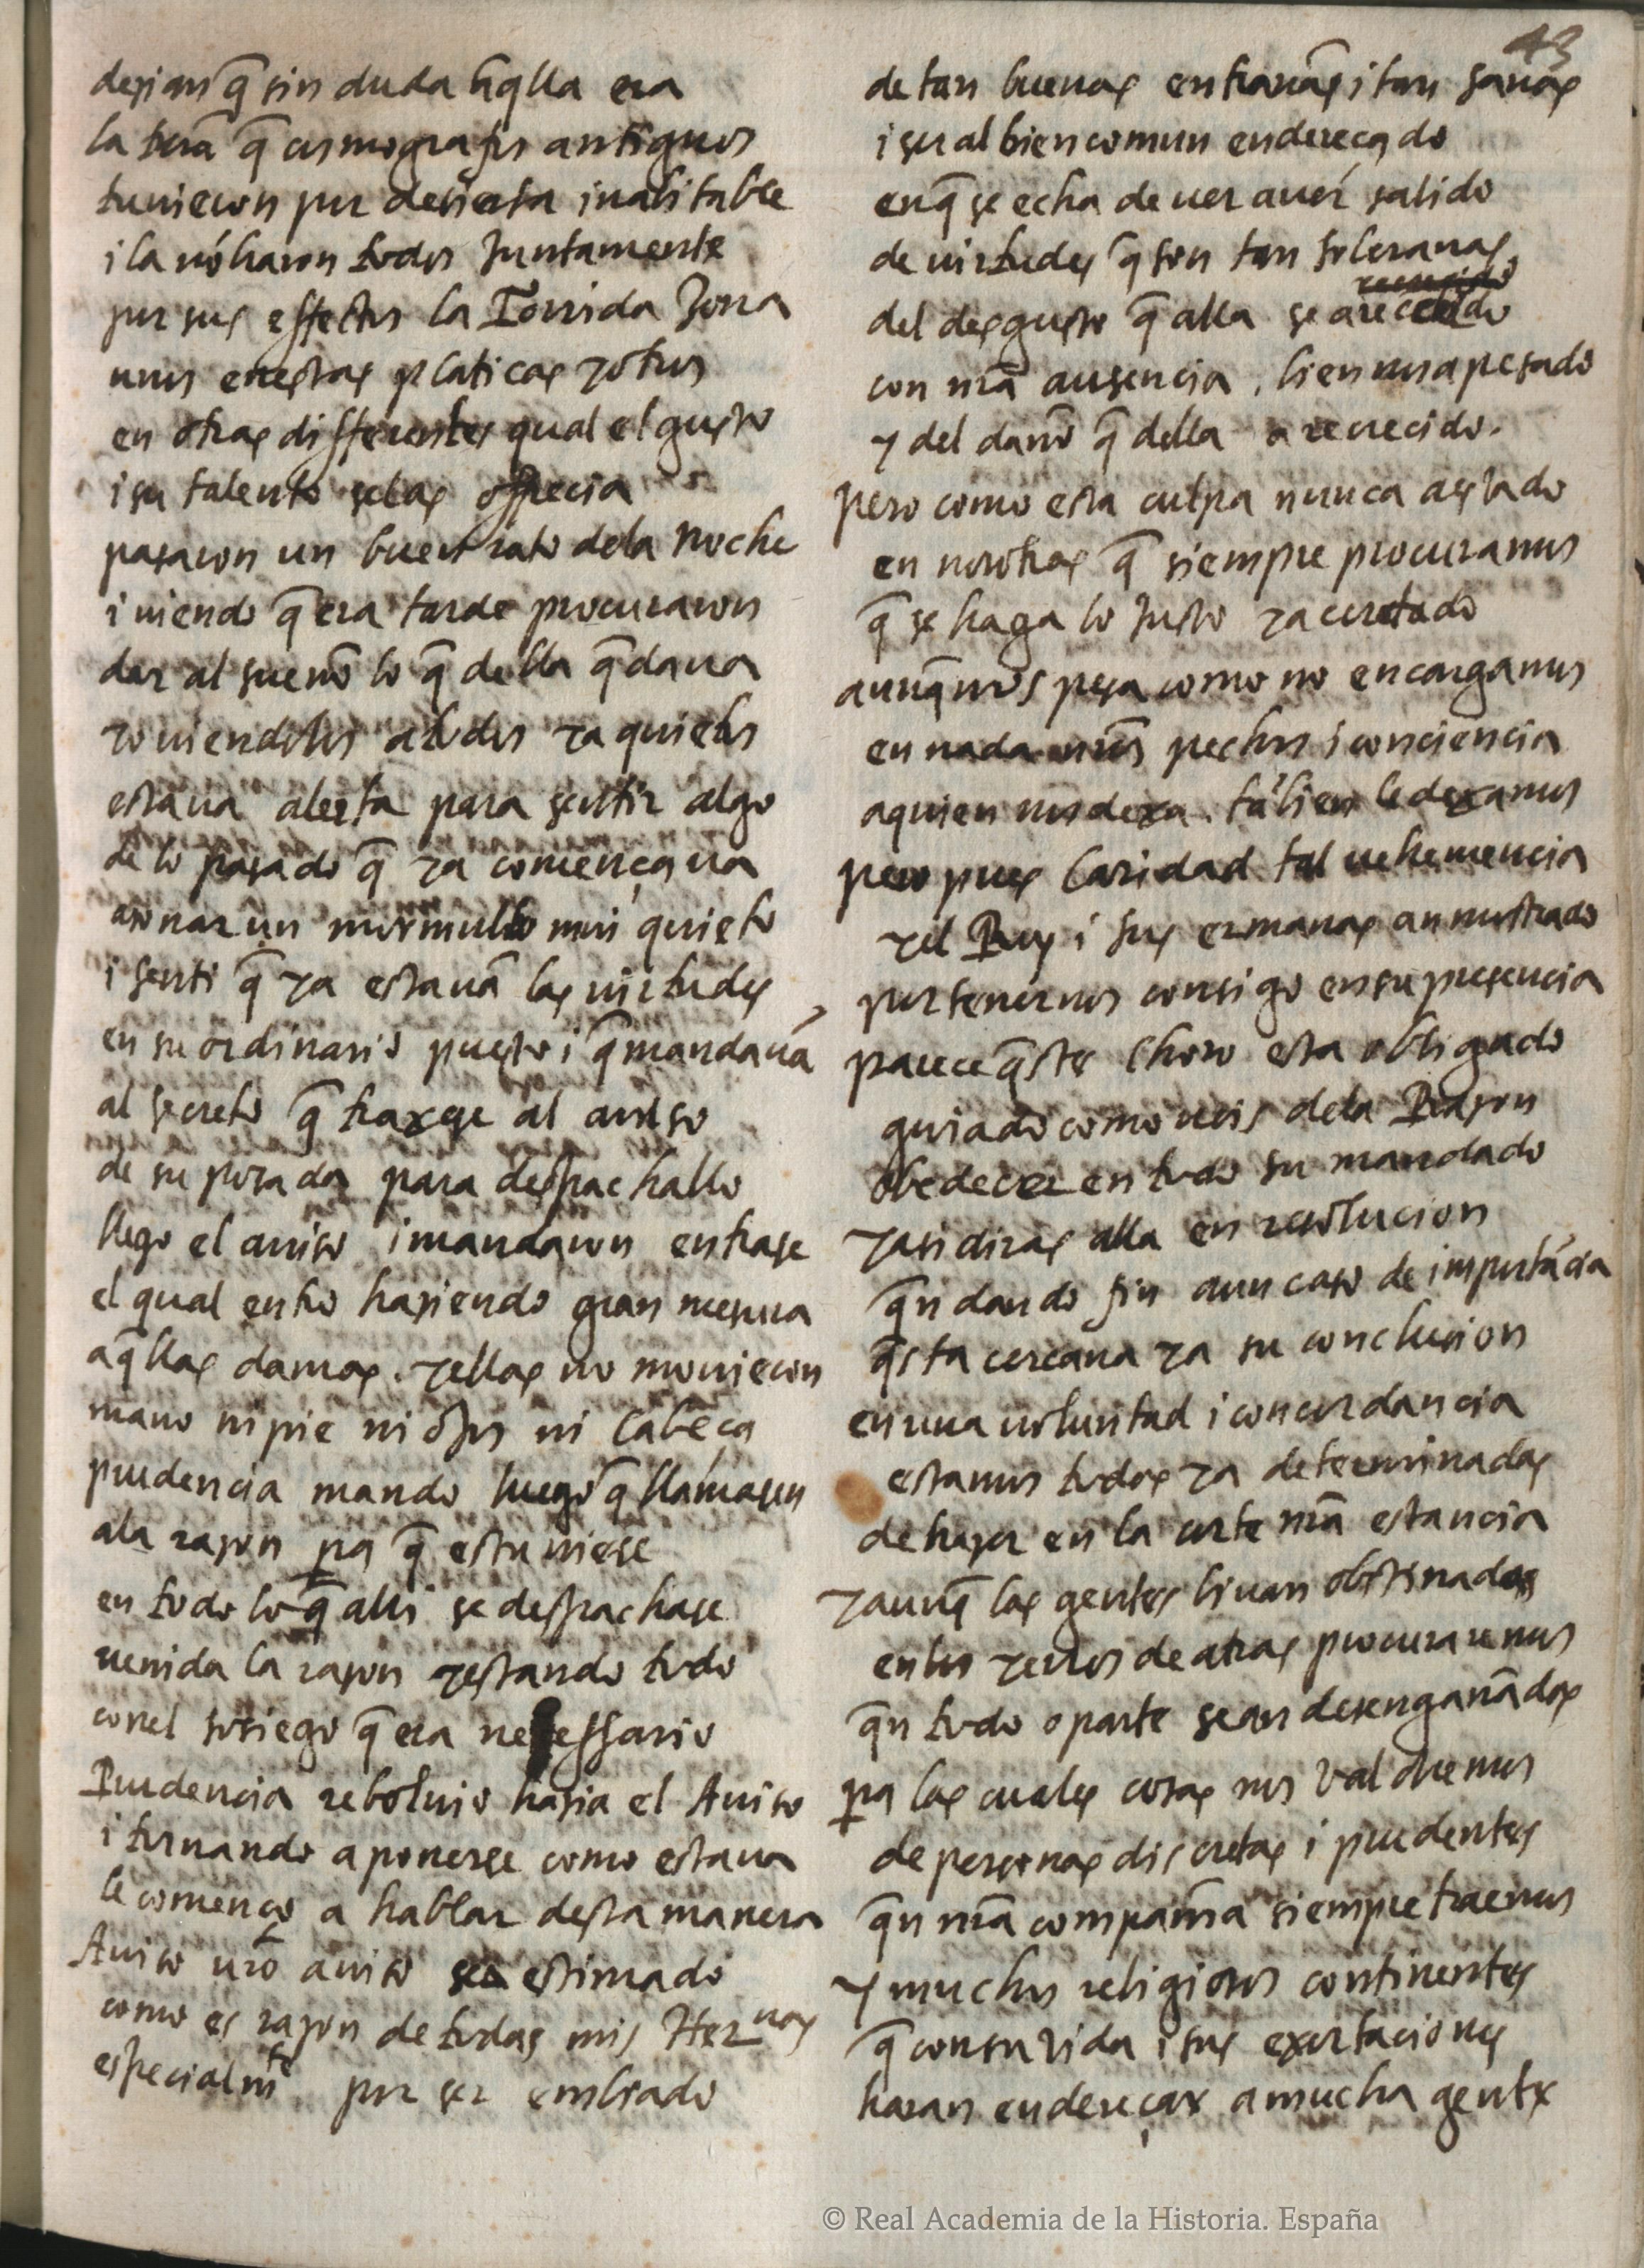 43
dezian q̃ sin duda aq̃lla era
la terã q̃ cosmografos antiguos
tuvieron por desierta inabitable
i la nõbraron todos juntamente
por sus effectos la Torrida Zona
unos enestas platicas y otros
en otras differentes qual el gusto
i su talento selas offrecia
pasaron un buen rato dela noche
i viendo q̃ era tarde procuraron
dar al sueño lo q̃ della q̃dava
yo viendolos a todos ya quietos
estava alerta para sentir algo
de lo pasado q̃ ya començava
asonar un mormullo mui quieto
i senti q̃ ya estavã las virtudes
en su ordinario puesto i q̃ mandavã
al secreto q̃ traxese al aviso
de su posada para despachallo
llego el aviso i mandaron entrase
el qual entro haziendo gran mesura
aq̃llas damas. yellas no movieron
mano ni pie ni ojos ni cabeça
prudencia mando luego q̃ llamasen
ala razon pa q̃ estuviese
en todo lo q̃ alli se despachase
venida la razon yestando todo
conel sosiego q̃ era necessario
Prudencia rebolvio hazia el Aviso
i tornando a ponerse como estava
le començo a hablar desta manera
Aviso vro aviso sea estimado
como es razon de todas mis Hernas
especialmte por ser embiado
de tan buenas entrañas i tan sanas
i ser al bien comun endereçado
enq̃ se echa de ver aver salido
de virtudes q̃ son tan soberanas
del desgusto q̃ alla se a recebido
con nrã ausencia, bien nos a pesado
y del daño q̃ della a recrecido.
pero como esta culpa nunca a estado
en nosotras q̃ siempre procuramos
q̃ se haga lo justo y acertado
aunq̃ nos pesa como no encargamos
en nada nrõs pechos i conciencia
aquien nos dexa. tãbien le dexamos
pero pues Caridad tal vehemencia
yel Rey i sus ermanas an mostrado
por tenernos consigo en su presencia
parece q̃ste choro esta obligado
guiado como veis dela Razon
obedecer en todo su mandado
yasi diras alla en resolucion
q̃n dando fin a un caso de importãcia
q̃sta cercana ya su conclusion
en una voluntad i concordancia
estamos todas ya determinadas
de hazer en la corte nrã estancia
yaunq̃ las gentes bivan obstinadas
en los yerros de atras procuraremos
q̃n todo o parte sean desengañadas
pa las cuales cosas nos valdremos
de personas discretas i prudentes
q̃n nrã compañia siempre traemos
y muchos religiosos continentes
q̃ con su vida i sus exortaciones
haran endereçar a mucha gente
© Real Academia de la Historia. España